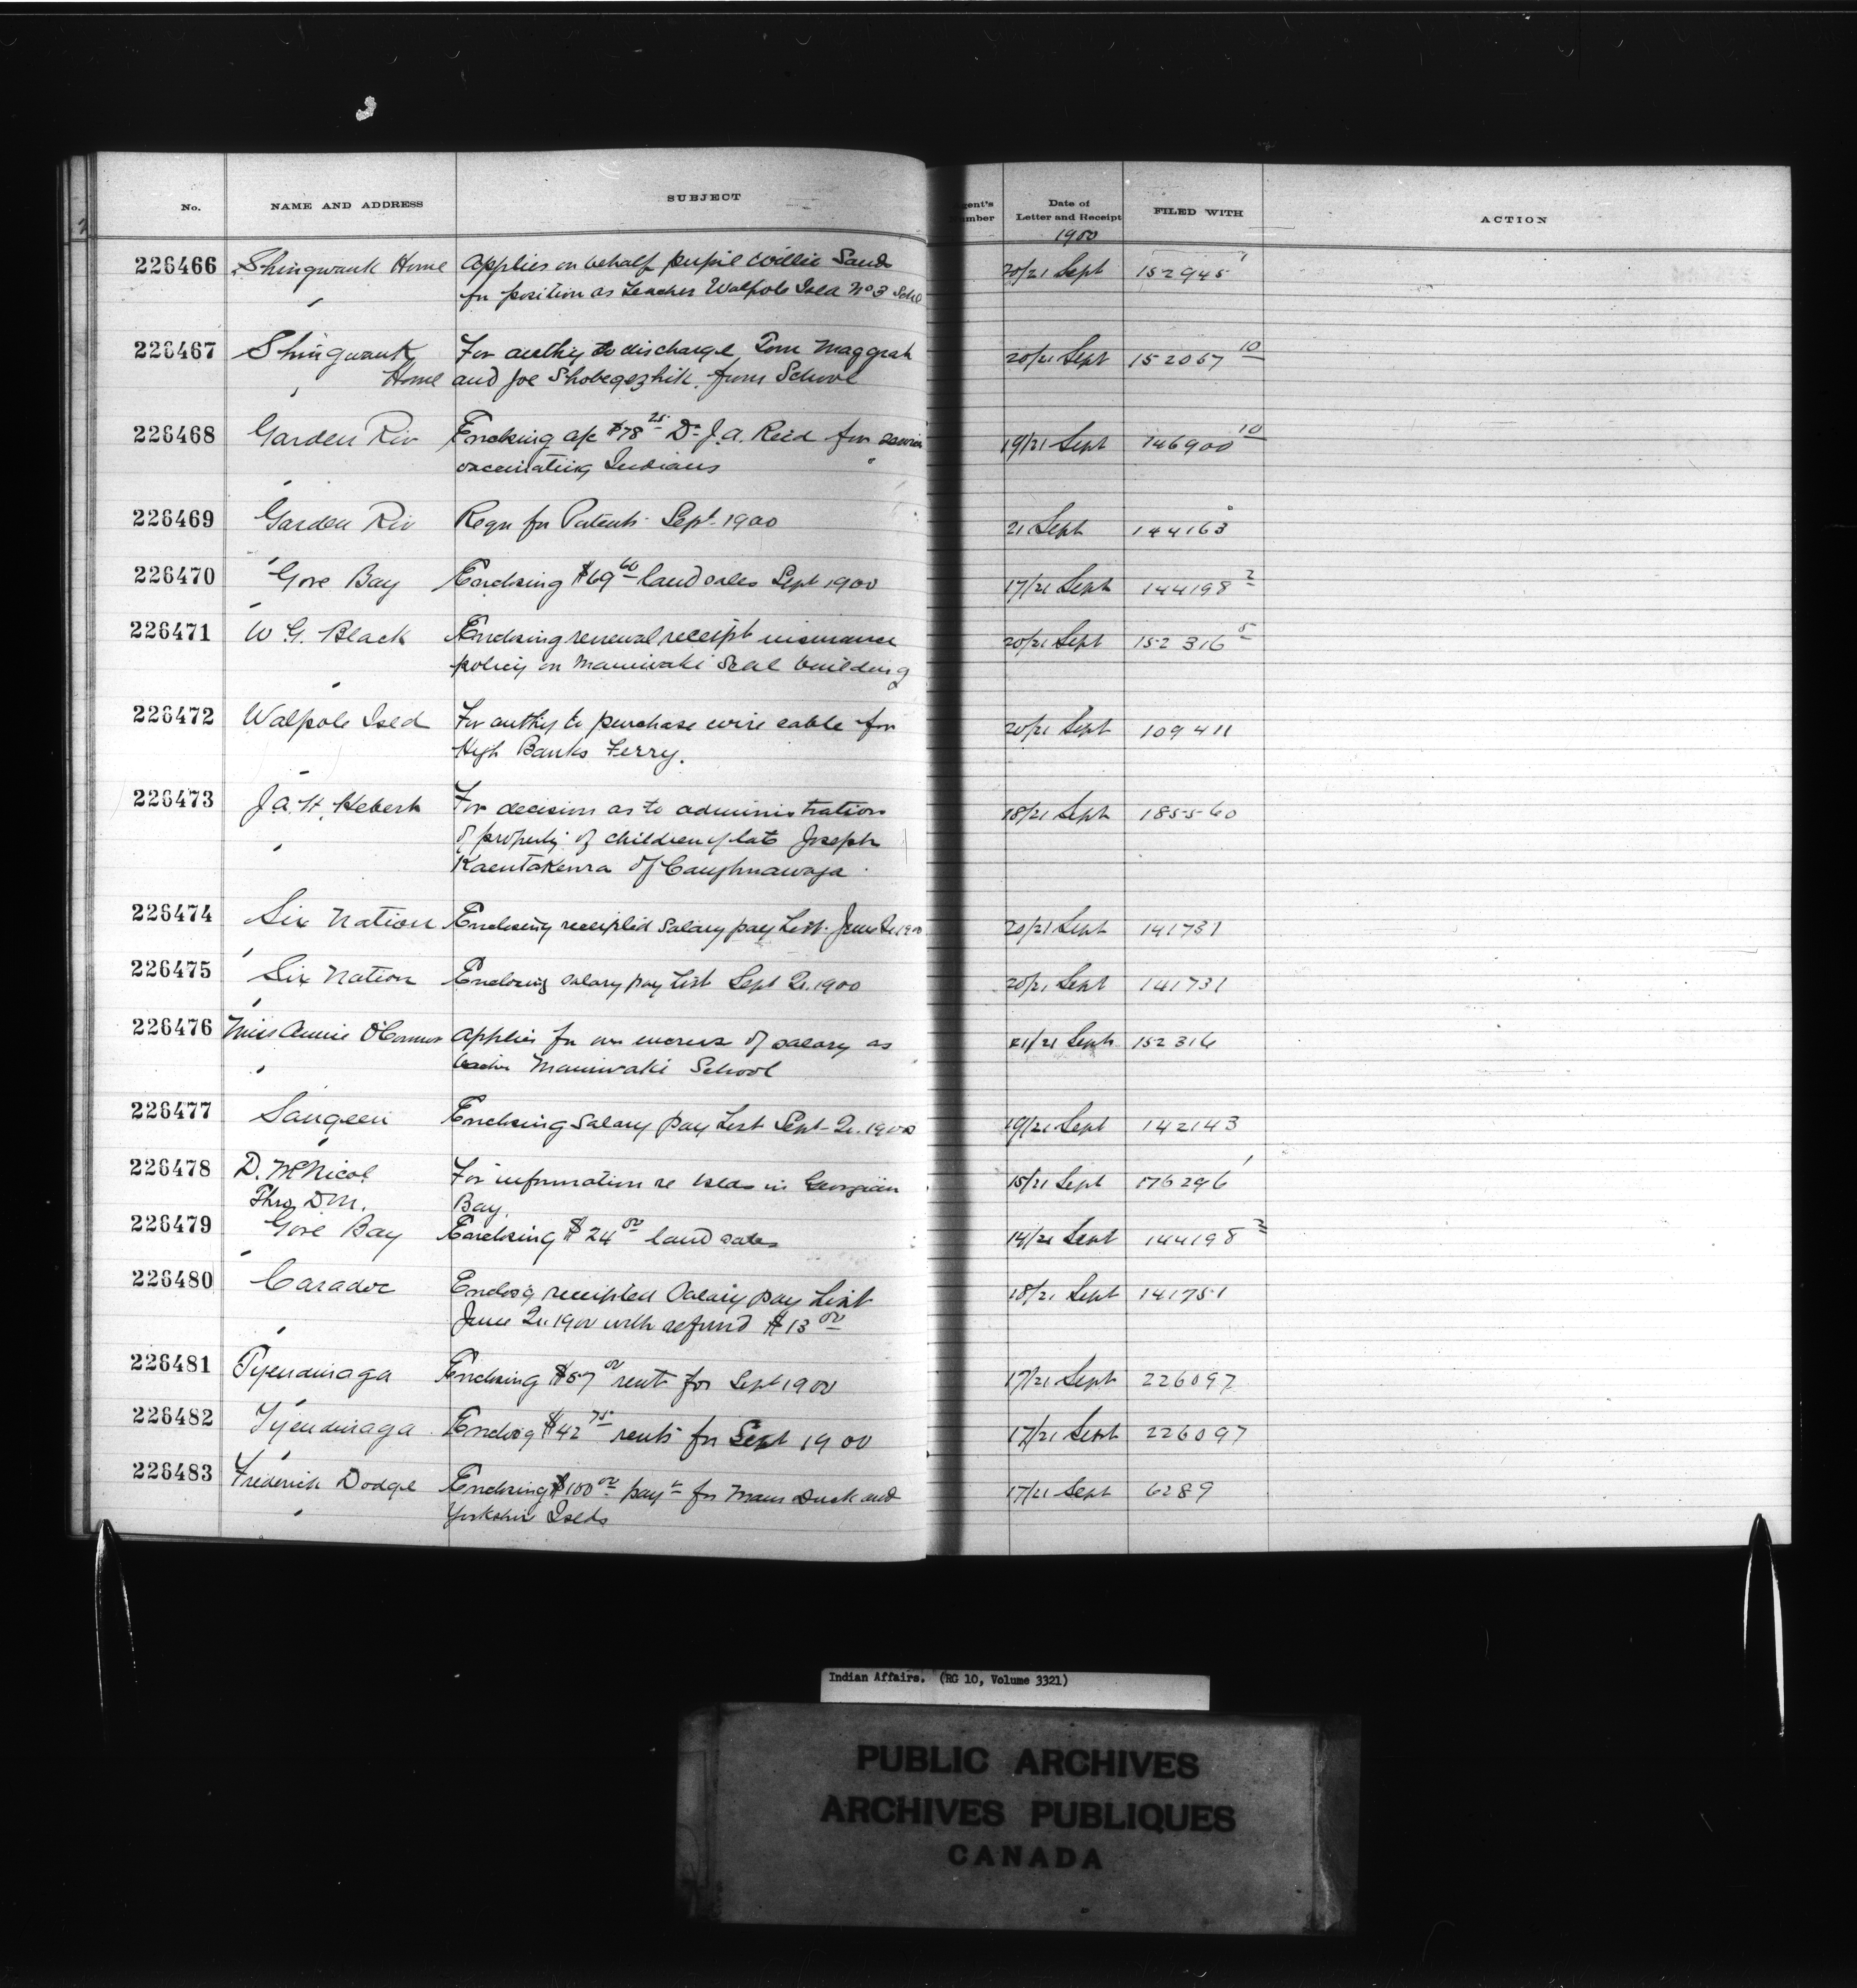 No. NAME AND ADDRESS SUBJECT Agent's Number Date of Letter and Receipt FILED WITH ACTION
1900
226466 Shingwauk Home Applies on behalf pupil Willie Sand 20/21 Sept 152945
for position as teacher Walpole Isld No 3 Schl
226467 Shingwauk For authy to discharge, Tom Maggrah 20/21 Sept 152067 10
Home and Joe Shobegezhik from School
226468 Garden Riv Enclosing a/c $78 25 Dr J. A. Reid for services 19/21 Sept 146900 10
vaccinating Indians
226469 Garden Riv Requ for Patents Sept 1900 21 Sept 144163
226470 Gore Bay Enclosing $69 60 land sales Sept 1900 17/21 Sept 144198 2
226471 W G. Black Enclosing renewal receipt insurance 20/21 Sept 152316 5
policy on Maniwaki Scol building
226472 Walpole Isld For authy to purchase wire cable for 20/21 Sept 109411
High Banks Ferry.
226473 J. A. H. Hebert For decision as to administration 18/21 Sept 185560
of property of children of late Joseph
Kaentakenra of Caughnawaga
226474 Six Nation Enclosing receipted salary pay List June Qr 1900 20/21 Sept 141731
226475 Six Nation Enclosing salary pay List Sept Qr. 1900 20/21 Sept 141731
226476 Miss Annie O'Connor Applies for an increase of salary as 21/21 Sept 152316
teacher Maniwaki School
226477 Saugeen Enclosing Salary pay List Sept Qr. 1900 19/21 Sept 142143
226478 D. McNicol For information re Islds in Georgian 15/21 Sept 176296 1
Thro D.M. Bay.
226479 Gore Bay Enclosing $24 00 land sales 14/21 Sept 144198 2
226480 Caradoc Enclosg receipted Salary pay List 18/21 Sept 141751
June Qr 1900 with refund $13 00
226481 Tyendinaga Enclosing $57 00 rent for Sept 1900 17/21 Sept 226097
226482 Tyendinaga Enclosg $42 75 rents for Sept 1900 17/21 Sept 226097
226483 Frederick Dodge Enclosing $100 00 payt for Mans Duck and 17/21 Sept 6289
Yorkshire Islds
Indian Affairs. (RG 10, Volume 3321)
PUBLIC ARCHIVES
ARCHIVES PUBLIQUES
CANADA